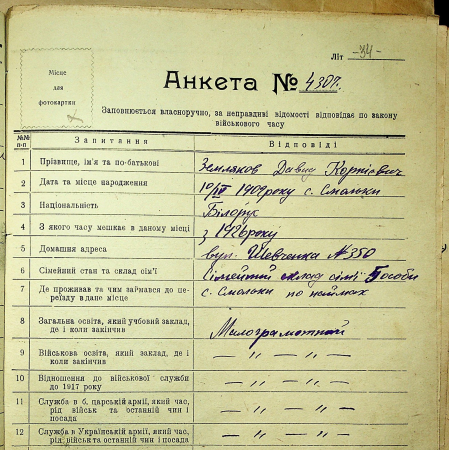 Літ -34-
Місце
для
фотокартки
Анкета № 4307.
Заповнюється власноручно, за неправдиві відомості відповідає по закону
військового часу
№№ п-п Запитання Відповіді
1 Прізвище, ім'я та по-батькові Земляков Давид Корнієвич
2 Дата та місце народження 10/ІІІ 1909 року с. Смольки
3 Національність Білорус
4 З якого часу мешкає в даному місці з 1926 року
5 Домашня адреса вул. Шевченка № 350
6 Сімейний стан та склад сім'ї Сімейний склад сім'ї 5 особи
7 Де проживав та чим займався до переїзду в дане місце с. Смольки по наймах
8 Загальна освіта, який учбовий заклад,
де і коли закінчив Малограмотний
9 Військова освіта, який заклад, де і
коли закінчив — " — " —
10 Відношення до військової служби
до 1917 року — " — " —
11 Служба в б. царській армії, який час,
рід військ та останній чин і
посада — " — " —
12 Служба в Українській армії, який час,
рід військ та останній чин і посада — " — " —